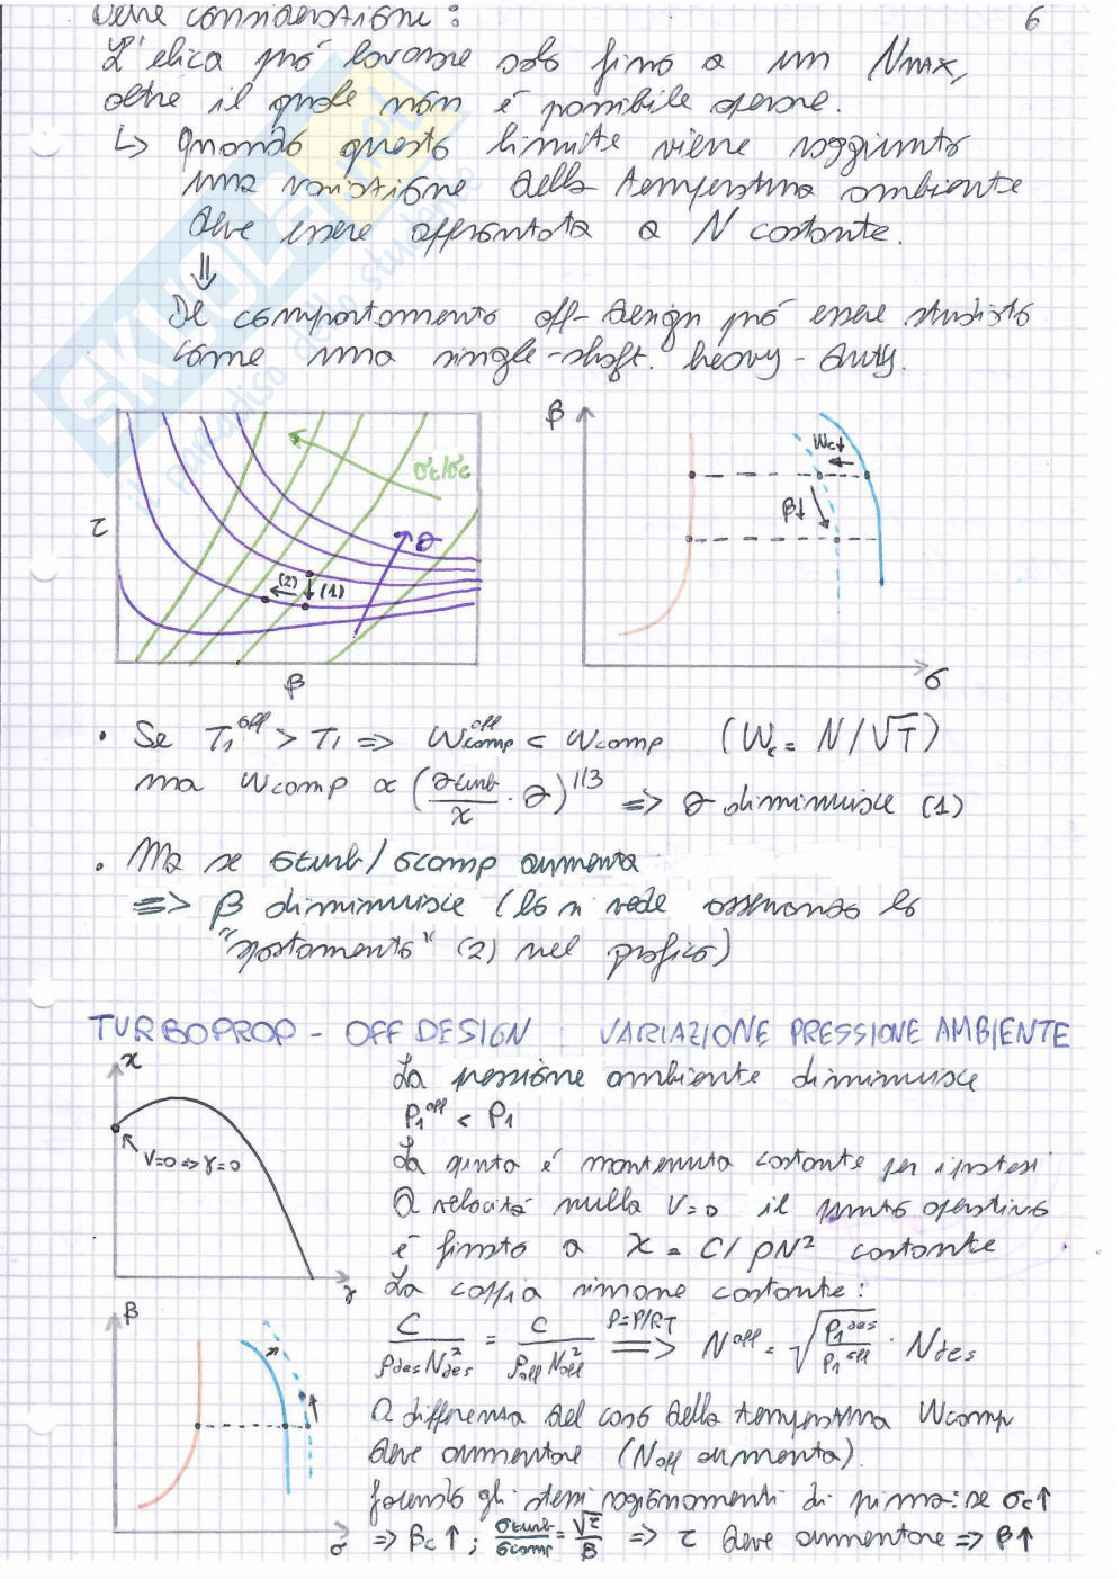 6
L'elica può lavorare solo fino a un Nmax,
oltre il quale non è possibile operare.
↳ Quando questo limite viene raggiunto
una variazione della temperatura ambiente
deve essere affrontata a N costante.
⇓
Il comportamento off-design può essere studiato
come una single-shaft heavy-duty.
τ
σt/σc
θ
(2)
(1)
β
β
Wc↓
β↓
σ
• Se T₁^off > T₁ => W^off comp < Wcomp (Wc = N/√T)
ma Wcomp ∝ (∂turb/x · ∂)^1/3 => ∂ diminuisce (1)
• Ma se σturb/σcomp aumenta
=> β diminuisce (lo si vede osservando lo
"spostamento" (2) nel grafico)
TURBOPROP - OFF DESIGN : VARIAZIONE PRESSIONE AMBIENTE
x
V=0 => γ=0
γ
La pressione ambiente diminuisce
P₁^off < P₁
La quota è mantenuta costante per ipotesi
A velocità nulla V=0 il punto operativo
è fissato a x = C/ρN² costante
La coppia rimane costante:
C/ρdes N²des = C/ρoff N²off =P=P/RT=> N^off = √(P₁^des/P₁^off) · Ndes
A differenza del caso della temperatura Wcomp
deve aumentare (Noff aumenta).
facendo gli stessi ragionamenti di prima: se σc↑
=> βc↑ ; σturb/σcomp = √τ/β => τ deve aumentare => β↑
β
σ